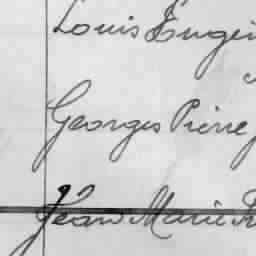 Louis Eugèn
Georges Pierre
Jean Marie